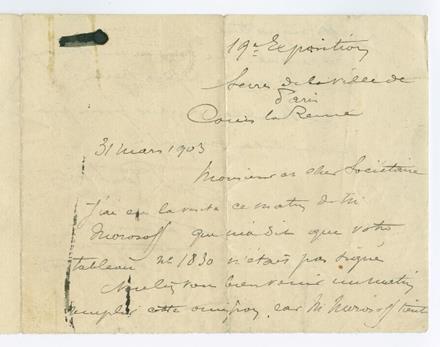 19e Exposition
Serres de la Ville de
Paris
Cours la Reine
31 mars 1903
Monsieur et cher Sociétaire
J'ai eu la visite ce matin de M.
Morosoff qui m'a dit que votre
tableau No 1830 n'était pas signé
Voulez vous bien venir un matin
remplir cette omission, car M. Morosoff tient